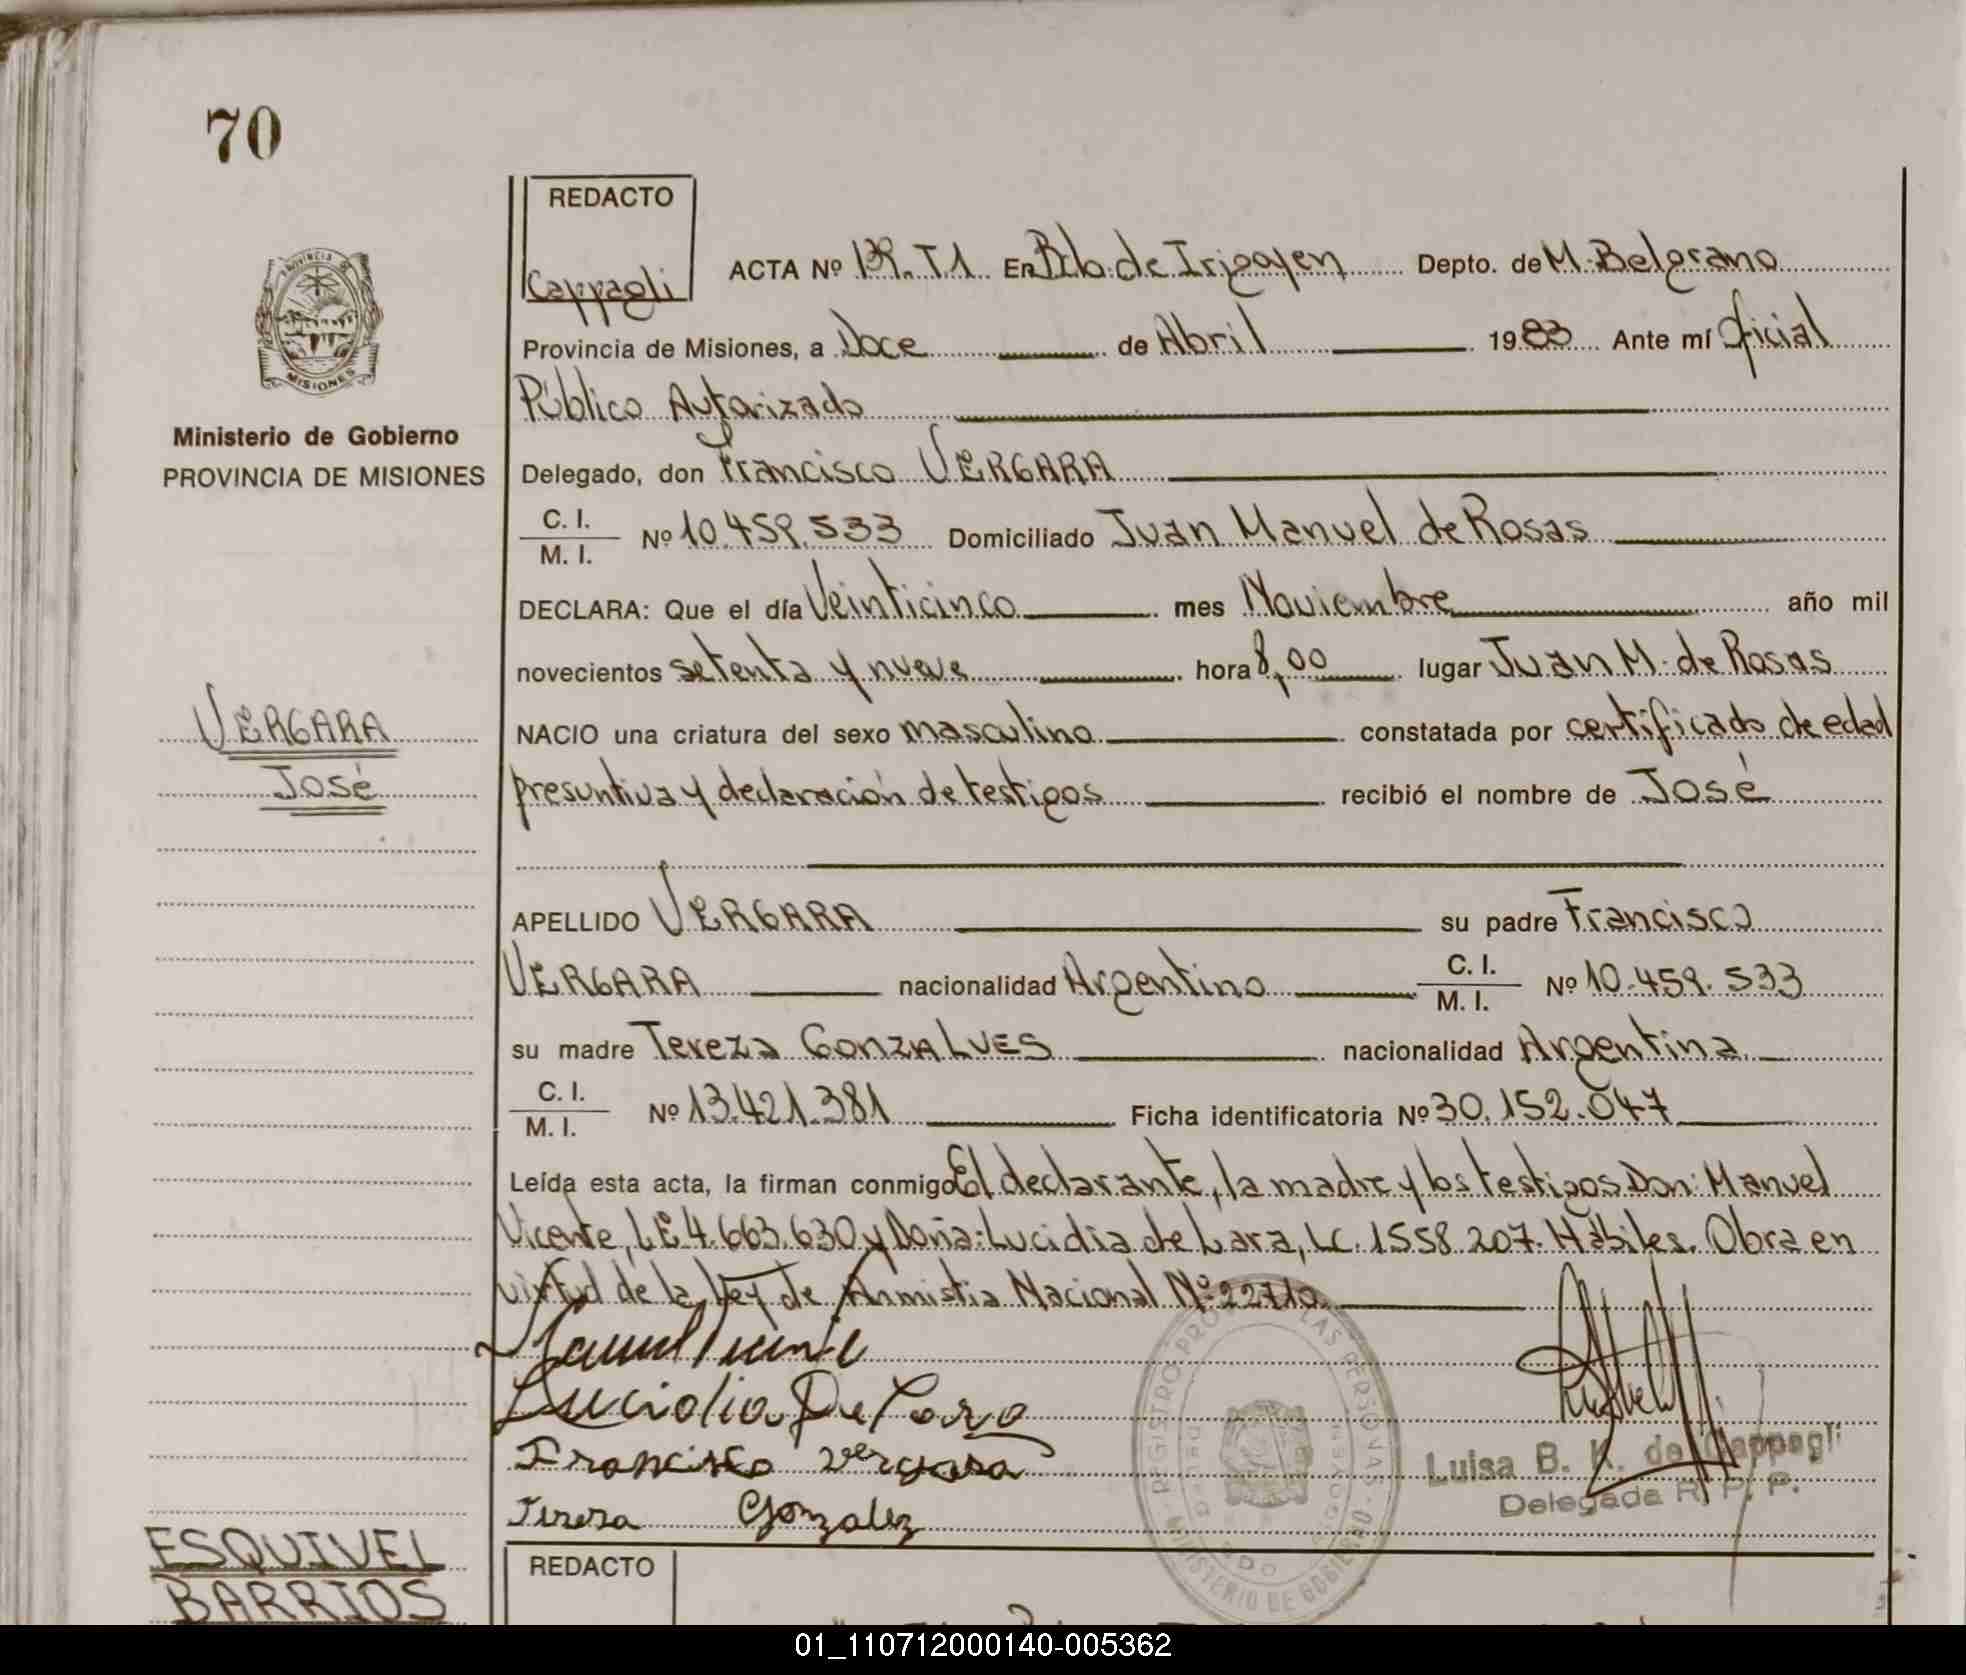 70
REDACTO
Cappagli
PROVINCIA DE
MISIONES
Ministerio de Gobierno
PROVINCIA DE MISIONES
ACTA Nº 139. T1 En Bdo. de Irigoyen Depto. de M. Belgrano
Provincia de Misiones, a Doce de Abril 1983 Ante mí Oficial
Público Autorizado
Delegado, don Francisco VERGARA
C. I. / M. I. Nº 10.459.533 Domiciliado Juan Manuel de Rosas
DECLARA: Que el día Veinticinco mes Noviembre año mil
novecientos setenta y nueve hora 8,00 lugar Juan M. de Rosas
VERGARA
José
NACIO una criatura del sexo masculino constatada por certificado de edad
presuntiva y declaración de testigos recibió el nombre de José
APELLIDO VERGARA su padre Francisco
VERGARA nacionalidad Argentino C. I. / M. I. Nº 10.459.533
su madre Tereza GONZALVES nacionalidad Argentina
C. I. / M. I. Nº 13.421.381 Ficha identificatoria Nº 30.152.047
Leída esta acta, la firman conmigo El declarante, la madre y los testigos Don: Manuel
Vicente, LE 4.663.630 y Doña: Lucidia de Lara, LC. 1558.207. Hábiles. Obra en
virtud de la ley de Anmistia Nacional Nº 22710
Manuel Vicente
Lucidia De Lara
Francisco Vergara
Teresa Gonzalez
REGISTRO PROVINCIAL DE LAS PERSONAS
MINISTERIO DE GOBIERNO
Luisa B. K. de Cappagli
Delegada R. P. P.
ESQUIVEL
BARRIOS
REDACTO
01_110712000140-005362